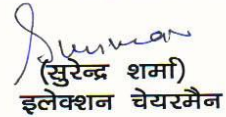 (सुरेन्द्र शर्मा)
इलेक्शन चेयरमैन